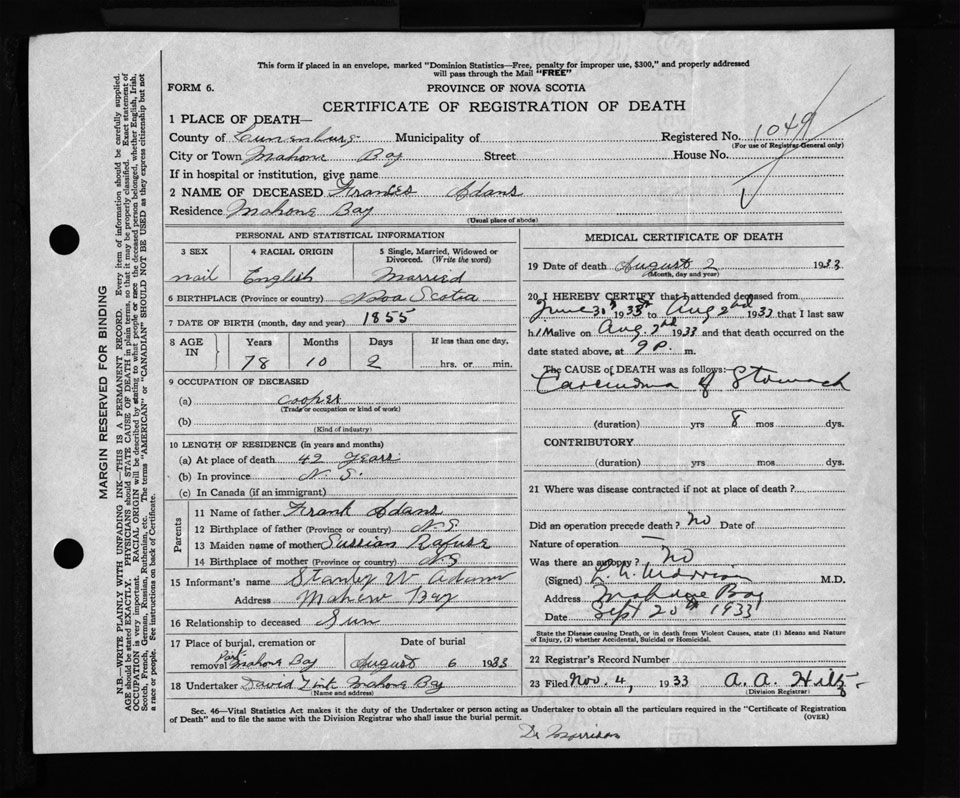 This form if placed in an envelope, marked "Dominion Statistics—Free, penalty for improper use, $300," and properly addressed
will pass through the Mail "FREE"
FORM 6.
PROVINCE OF NOVA SCOTIA
CERTIFICATE OF REGISTRATION OF DEATH
1 PLACE OF DEATH—
County of Lunenburg Municipality of Registered No. 1049
(For use of Registrar General only)
City or Town Mahone Bay Street House No.
If in hospital or institution, give name
2 NAME OF DECEASED Frances Adans
Residence Mahone Bay
(Usual place of abode)
PERSONAL AND STATISTICAL INFORMATION
3 SEX 4 RACIAL ORIGIN 5 Single, Married, Widowed or Divorced. (Write the word)
mail English Married
6 BIRTHPLACE (Province or country) Nova Scotia
7 DATE OF BIRTH (month, day and year) 1855
8 AGE IN Years Months Days If less than one day,
78 10 2 hrs. or min.
9 OCCUPATION OF DECEASED
(a) cooper
(Trade or occupation or kind of work)
(b)
(Kind of industry)
10 LENGTH OF RESIDENCE (in years and months)
(a) At place of death 42 years
(b) In province N. S.
(c) In Canada (if an immigrant)
Parents
11 Name of father Frank Adans
12 Birthplace of father (Province or country) N. S
13 Maiden name of mother Sussian Rafuse
14 Birthplace of mother (Province or country) N S
15 Informant's name Stanley W Adams
Address Mahone Bay
16 Relationship to deceased Sun
17 Place of burial, cremation or removal Mahone Bay Date of burial August 6 1933
18 Undertaker David Zink Mahone Bay
(Name and address)
MEDICAL CERTIFICATE OF DEATH
19 Date of death August 2 1933
(Month, day and year)
20 I HEREBY CERTIFY that I attended deceased from
June 1933 to Aug 2nd 1933 that I last saw
h im alive on Aug. 2nd 1933 and that death occurred on the
date stated above, at 9 P. m.
The CAUSE of DEATH was as follows:
Carcinoma of Stomach
(duration) yrs 8 mos dys.
CONTRIBUTORY
(duration) yrs mos dys.
21 Where was disease contracted if not at place of death?
Did an operation precede death? No Date of
Nature of operation —
Was there an autopsy? No
(Signed) M.D.
Address Mahone Bay
Date Sept 20th 1933
State the Disease causing Death, or in death from Violent Causes, state (1) Means and Nature
of Injury, (2) whether Accidental, Suicidal or Homicidal.
22 Registrar's Record Number
23 Filed Nov. 4, 1933 A. A. Hiltz
(Division Registrar)
Sec. 46—Vital Statistics Act makes it the duty of the Undertaker or person acting as Undertaker to obtain all the particulars required in the "Certificate of Registration
of Death" and to file the same with the Division Registrar who shall issue the burial permit. (OVER)
Dr Morrison
MARGIN RESERVED FOR BINDING
N.B.—WRITE PLAINLY WITH UNFADING INK—THIS IS A PERMANENT RECORD. Every item of information should be carefully supplied.
AGE should be stated EXACTLY. PHYSICIANS should STATE CAUSE OF DEATH in plain terms, so that it may be properly classified. Exact statement of
OCCUPATION is very important. RACIAL ORIGIN will be described by stating to what people or race the deceased person belonged, whether English, Irish,
Scotch, French, German, Russian, Ruthenian, etc. The terms "AMERICAN" or "CANADIAN" SHOULD NOT BE USED as they express citizenship but not
a race or people. See instructions on back of Certificate.